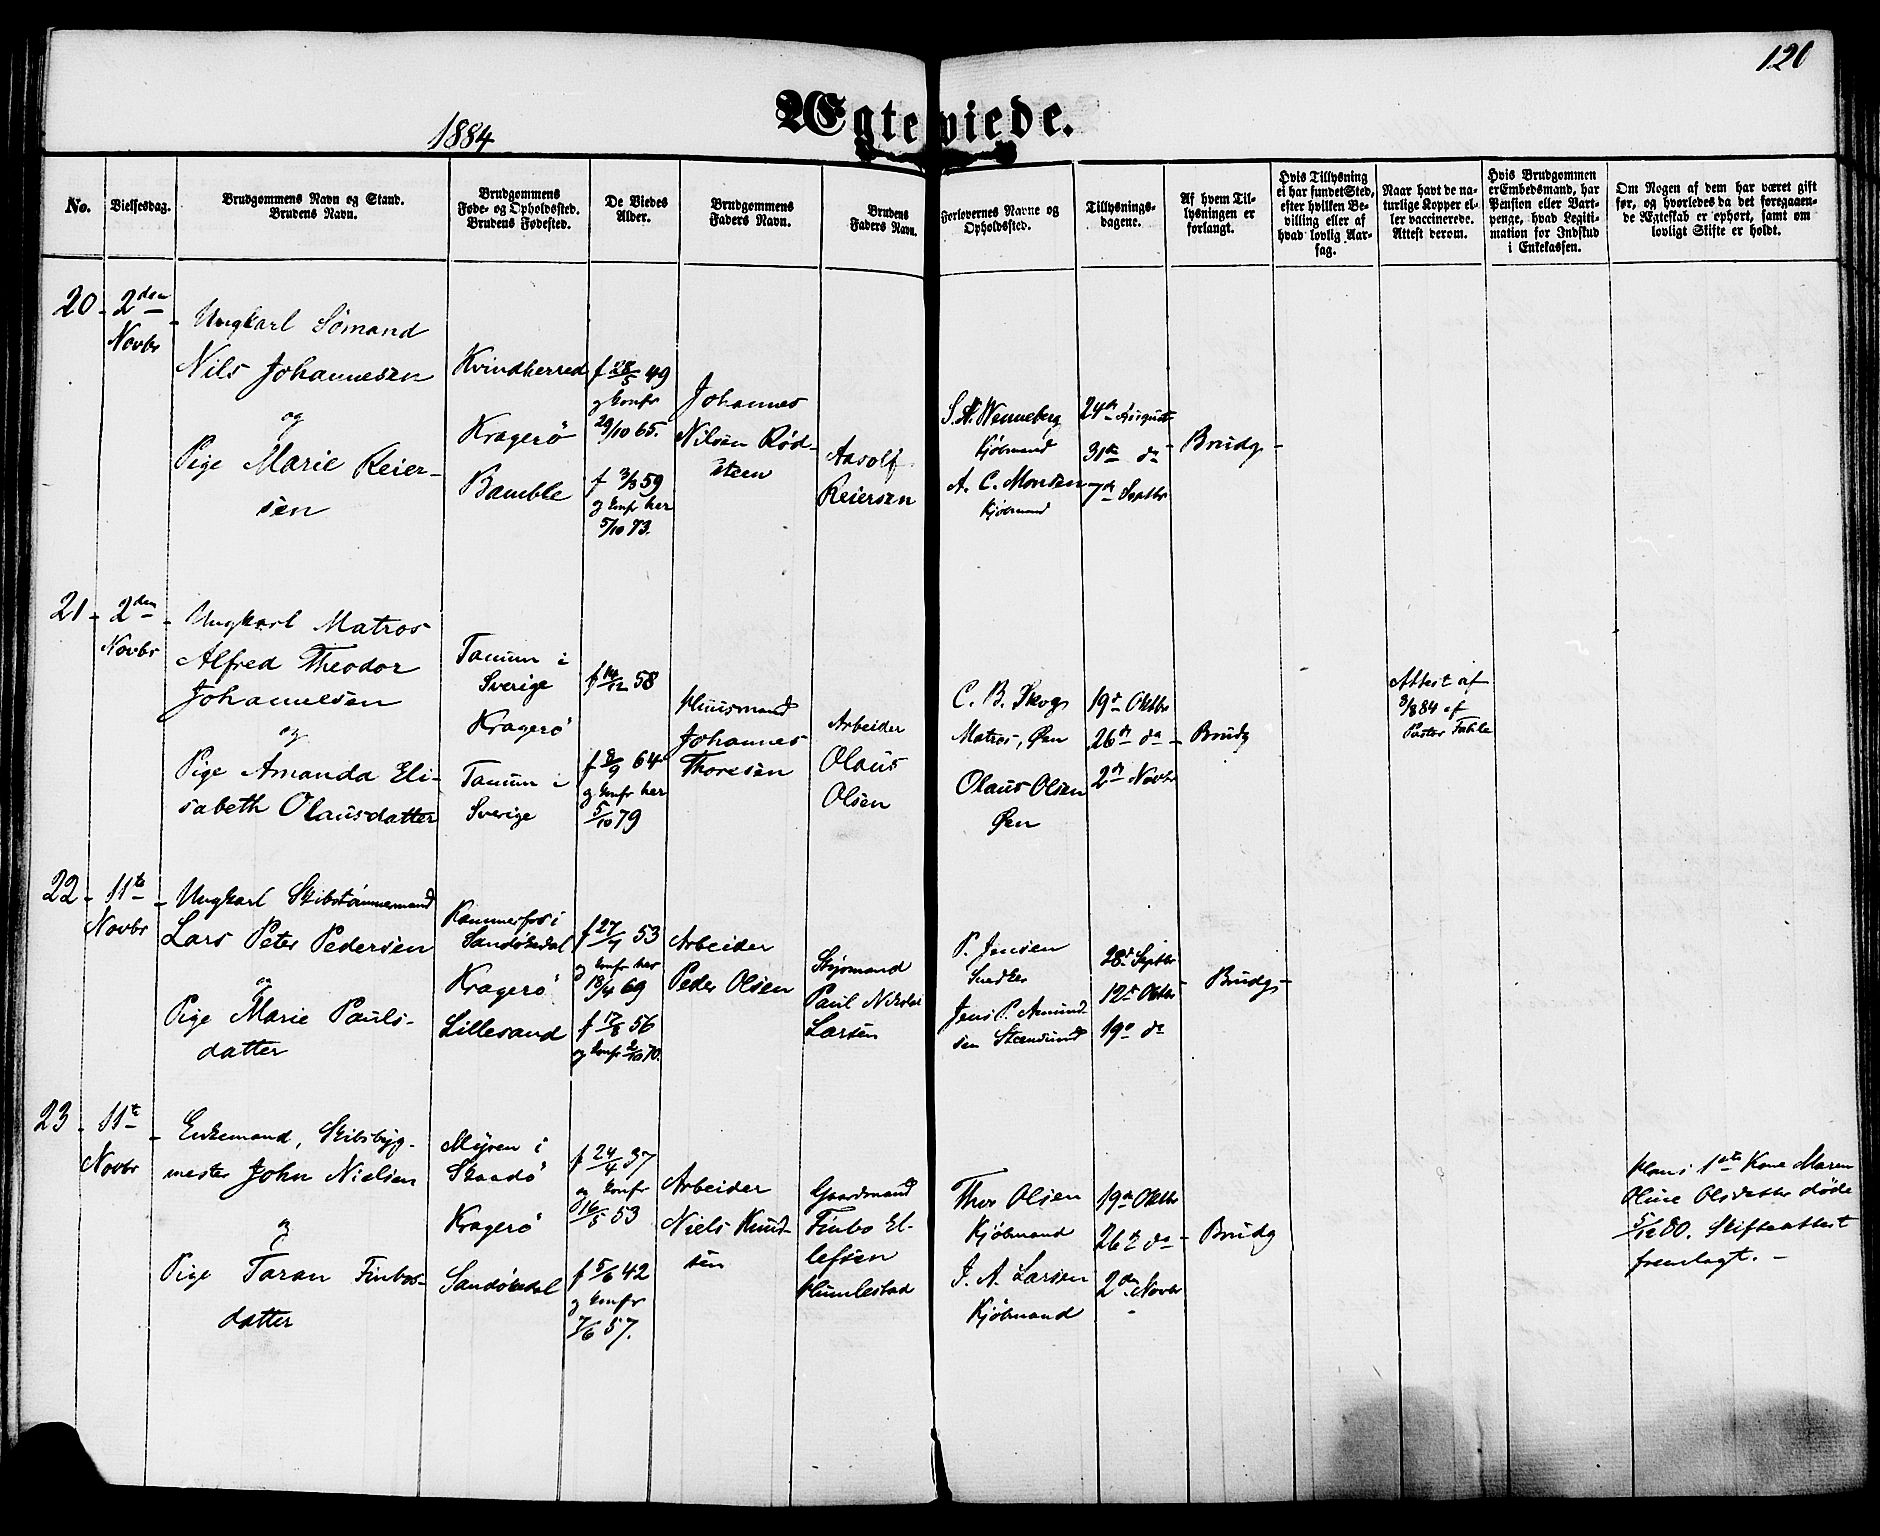 120
1884
Ægteviede.
No.
Vielsesdag.
Brudgommens Navn og Stand.
Brudens Navn.
Brudgommens
Føde- og Opholdssted.
Brudens Fødested.
De Viedes
Alder.
Brudgommens
Faders Navn.
Brudens
Faders Navn.
Forlovernes Navne og
Opholdssted.
Tillysnings-
dagene.
Af hvem Til-
lysningen er
forlangt.
Hvis Tillysning
ei har fundet Sted,
efter hvilken Be-
villing eller af
hvad lovlig Aar-
sag.
Naar havt de na-
turlige Kopper el-
ler vaccinerede.
Attest derom.
Hvis Brudgommen
er Embedsmand, har
Pension eller Vart-
penge, hvad Legiti-
mation for Indskud
i Enkekassen.
Om Nogen af dem har været gift
før, og hvorledes da det foregaaen-
de Ægteskab er ophørt, samt om
lovligt Skifte er holdt.
20 -
2den
Novbr
- Ungkarl Sömand
Nils Johannesen
og
Pige Marie Reier-
sen
Kvindherred
Kragerö
Bamble
f 28/5 49
og konfr
29/10 65.
f 3/3 59
og konfr her
5/10 73.
Johannes
Nilsen Rød-
steen
Aavolf
Reiersen
S. N. Wenneberg
Kjöbmand
A. C. Monsen
Kjöbmand
24de August
31te da
7de Septbr
Brudg -
21 -
2den
Novbr
- Ungkarl Matros
Alfred Theodor
Johannesen
og
Pige Amanda Eli-
sabeth Olausdatter
Tanum i
Sverige
Kragerö
Tanum i
Sverige
f 14/12 58
f 8/9 64
og konfr her
5/10 79
Huusmand
Johannes
Thoresen
Arbeider
Olaus
Olsen
C. B. Skog
Matros, Øen
Olaus Olsen
Øen
19de Oktbr
26de da -
2den Novbr
Brudg
Attest af
3/8 84 af
Pastor
22 -
11te
Novbr
- Ungkarl Skibstömmermand
Lars Peter Pedersen
og
Pige Marie Pauls-
datter
Kammerfos i
Sandökedal
Kragerö
Lillesand
f 27/7 53
og konfr her
18/4 69
f 17/8 56
og konfr 2/10 70.
Arbeider
Peder Olsen
Styrmand
Paul Nikolai
Larsen
P. Jensen
Snedker
Jens P. Amund-
sen Steensund
28de Septbr
12te Oktbr -
19de da
Brudg -
23 -
11te
Novbr
- Enkemand, Skibsbyg-
mester John Nielsen
og
Pige Taran Finbos-
datter
Myren i
Skaadö
Kragerö
Sandökedal
f 24/4 37
og konfr
16/5 53
f 5/6 42
og konfr
7/6 57.
Arbeider
Niels Knud-
sen
Gaardmand
Finbo El-
lefsen
Humlestad
Thor Olsen
Kjöbmand
J. A. Larsen
Kjöbmand
19de Oktbr
26de da -
2den Novbr
Brudg
Hans 1ste Kone Maren
Oline Olsdatter döde
5/12 80. Skifteattest
fremlagt. -